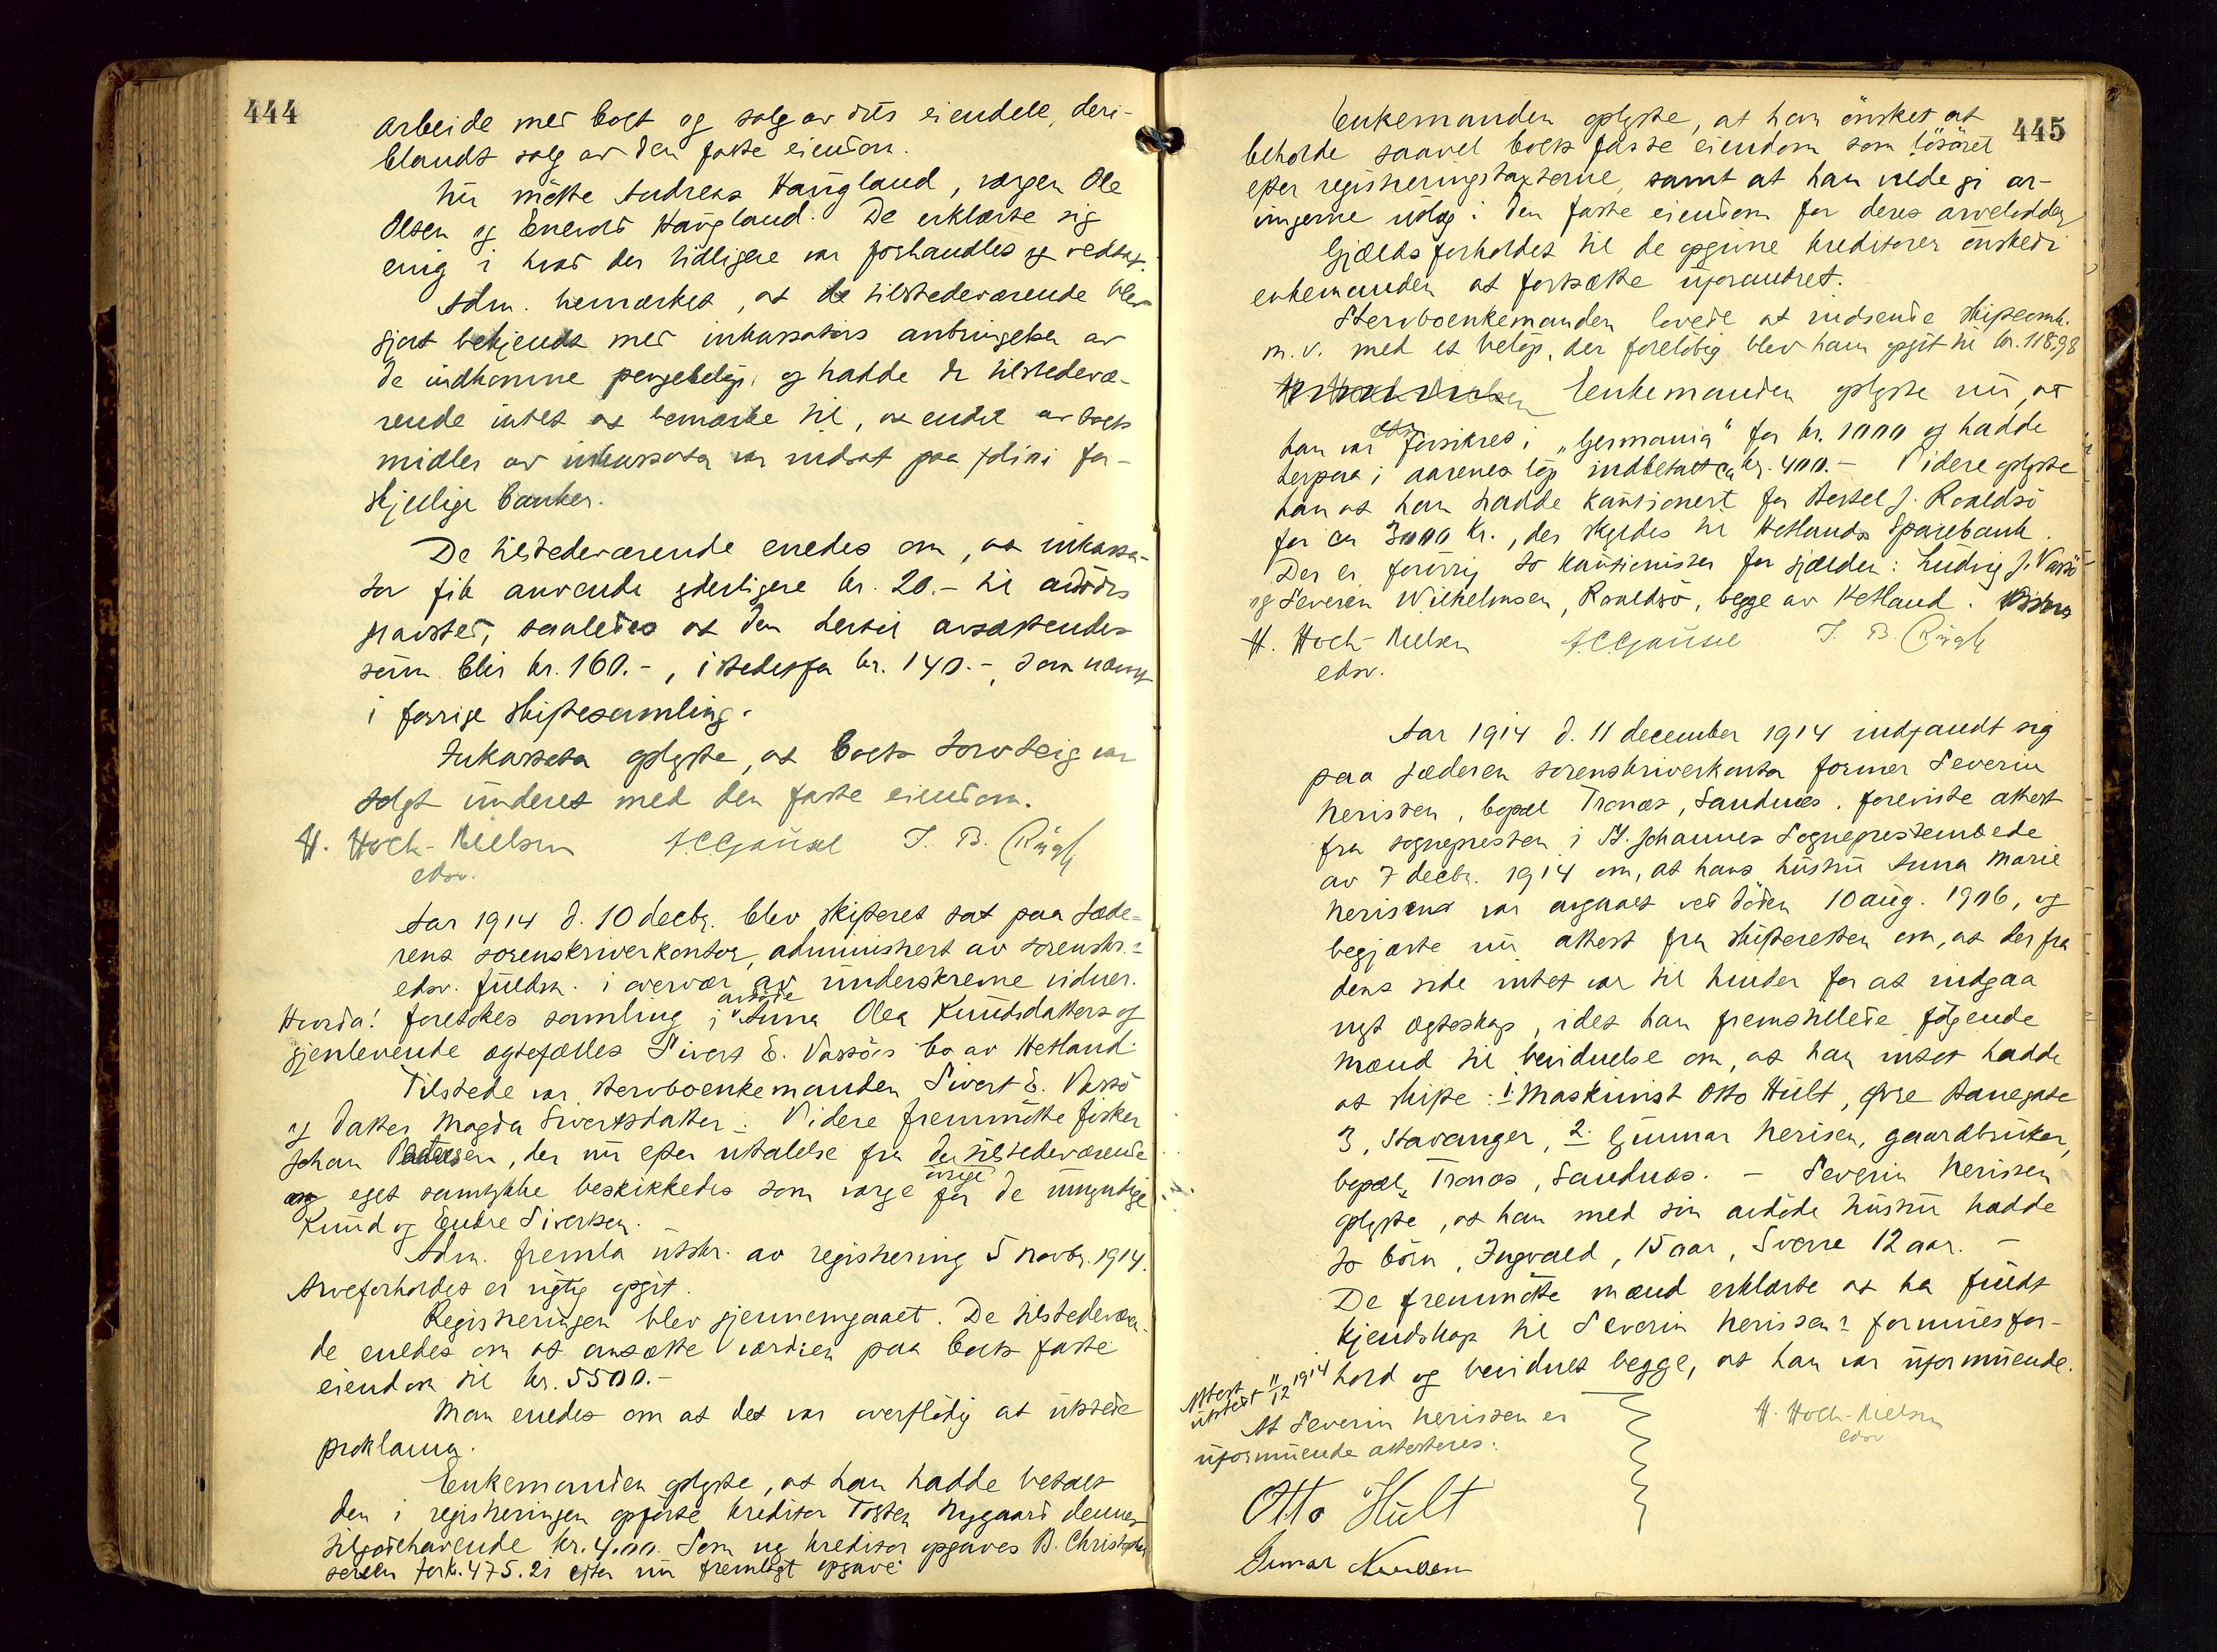 444
arbeide med boet og salg av dets eiendele, deri-
blandt salg av den faste eiendom.
Nu mötte Andreas Haugland, vergen Ole
Olsen og Enevold Haugland. De erklærte sig
enig i hvad der tidligere var forhandlet og vedtat.
Adm. bemærket, at de tilstedeværende blev
gjort bekjendt med inkassators anbringelse av
de indkomne pengebeløp, og hadde de tilstedevæ-
rende intet at bemærke til, at endel av boets
midler av inkassator var indsat paa folio i for-
skjellige banker.
De tilstedeværende enedes om, at inkassa-
tor fik anvende yderligere kr. 20.- til avdødes
gravsted, saaledes at den hertil avsættendes
sum blir kr. 160.-, istedetfor kr. 140.-, som nævnt
i forrige skiftesamling.
Inkassator oplyste, at boets torvteig var
solgt underet med den faste eiendom.
H. Hoch-Nielsen A.C. Gausel T. B. Rügh
edsv.
Aar 1914 d. 10 decbr. blev skifteret sat paa Jæde-
rens sorenskriverkontor, administrert av sorenskr.s
edsv. fuldm. i overvær av underskrevne vidner.
Hvorda! foretokes samling i avdøde Anna Olea Knudsdatters og
gjenlevende ægtefælles Sivert E. Vassös bo av Hetland.
Tilstede var stervboenkemanden Sivert E. Vassö
og datter Magda Sivertsdatter. Videre fremmötte fisker
Johan Pedersen, der nu efter uttalelse fra de tilstedeværende
og eget samtykke beskikkedes som verge for de övrige umyndige
Knud og Endre Siversen.
Adm. fremla utskr. av registrering 5 novbr. 1914.
Arveforholdet er rigtig opgit.
Registreringen blev gjennemgaaet. De tilstedeværen-
de enedes om at ansætte værdien paa boets faste
eiendom til kr. 5500.-
Man enedes om at det var overflödig at utstede
proklama.
Enkemanden oplyste, at han hadde betalt
den i registreringen opförte kreditor Tosten Nygaard dennes
tilgodehavende kr. 4,00. Som ny kreditor opgaves B. Christopher
sersen for kr. 475.21 efter nu fremlagt opgave
445
Enkemanden oplyste, at han önsket at
beholde saavel boets faste eiendom som lösöret
efter registreringstaxterne, samt at han vilde gi ar-
vingerne utlæg i den faste eiendom for deres arvelodder
Gjældsforholdet til de opgivne kreditorer önskedi
enkemanden at fortsætte uforandret.
Stervboenkemanden lovede at indsende skifteomk.
m.v. med et belöp, der forelöbig blev ham opgit til kr. 118,98
Enkemanden oplyste nu, at
han var livsforsikret i „Germania" for kr. 1000 og hadde
herpaa i aarenes löp indbetalt ca kr. 400.- Videre oplyste
han at han hadde kautionert for Bertel J. Roaldsö
for ca 3000 kr., der skyldes til Hetlands Sparebank.
Der er forövrig to kautionister for gjælden: Ludvig J. Vassö
og Severen Wilhelmsen, Roaldsö, begge av Hetland.
H. Hoch-Nielsen A.C. Gausel T. B. Rügh
edsv.
Aar 1914 d. 11 december 1914 indfandt sig
paa Jæderen sorenskriverkontor former Severin
Nerisen, bopæl Tronæs, Sandnes, foreviste attest
fra sognepresten i St. Johannes Sogneprestembede
av 7 decbr. 1914 om, at hans hustru Anna Marie
Nerisens var avgaaet ved döden 10 aug. 1906, og
begjærte nu attest fra skifteretten om, at der fra
dens side intet var til hinder for at indgaa
nyt ægteskap, idet han fremstillede fölgende
mænd til bevidnelse om, at han intet hadde
at skifte: 1. Maskinist Otto Hült, Øvre Banegate
3, Stavanger, 2. Gunnar Nerisen, gaardbruker,
bopæl Tronæs, Sandnæs. - Severin Nerissen
oplyste, at han med sin avdöde hustru hadde
to börn, Ingvald, 15 aar, Sverre 12 aar. -
De fremmötte mænd erklærte at ha fuldt
kjendskap til Severin Nerissens formuesfor-
hold og bevidnet begge, at han var uformuende.
Attest
utstedt 11/12 1914
At Severin Nerissen er
uformuende attesteres:
H. Hoch-Nielsen
edsv.
Otto Hült
Gunnar Nerisen